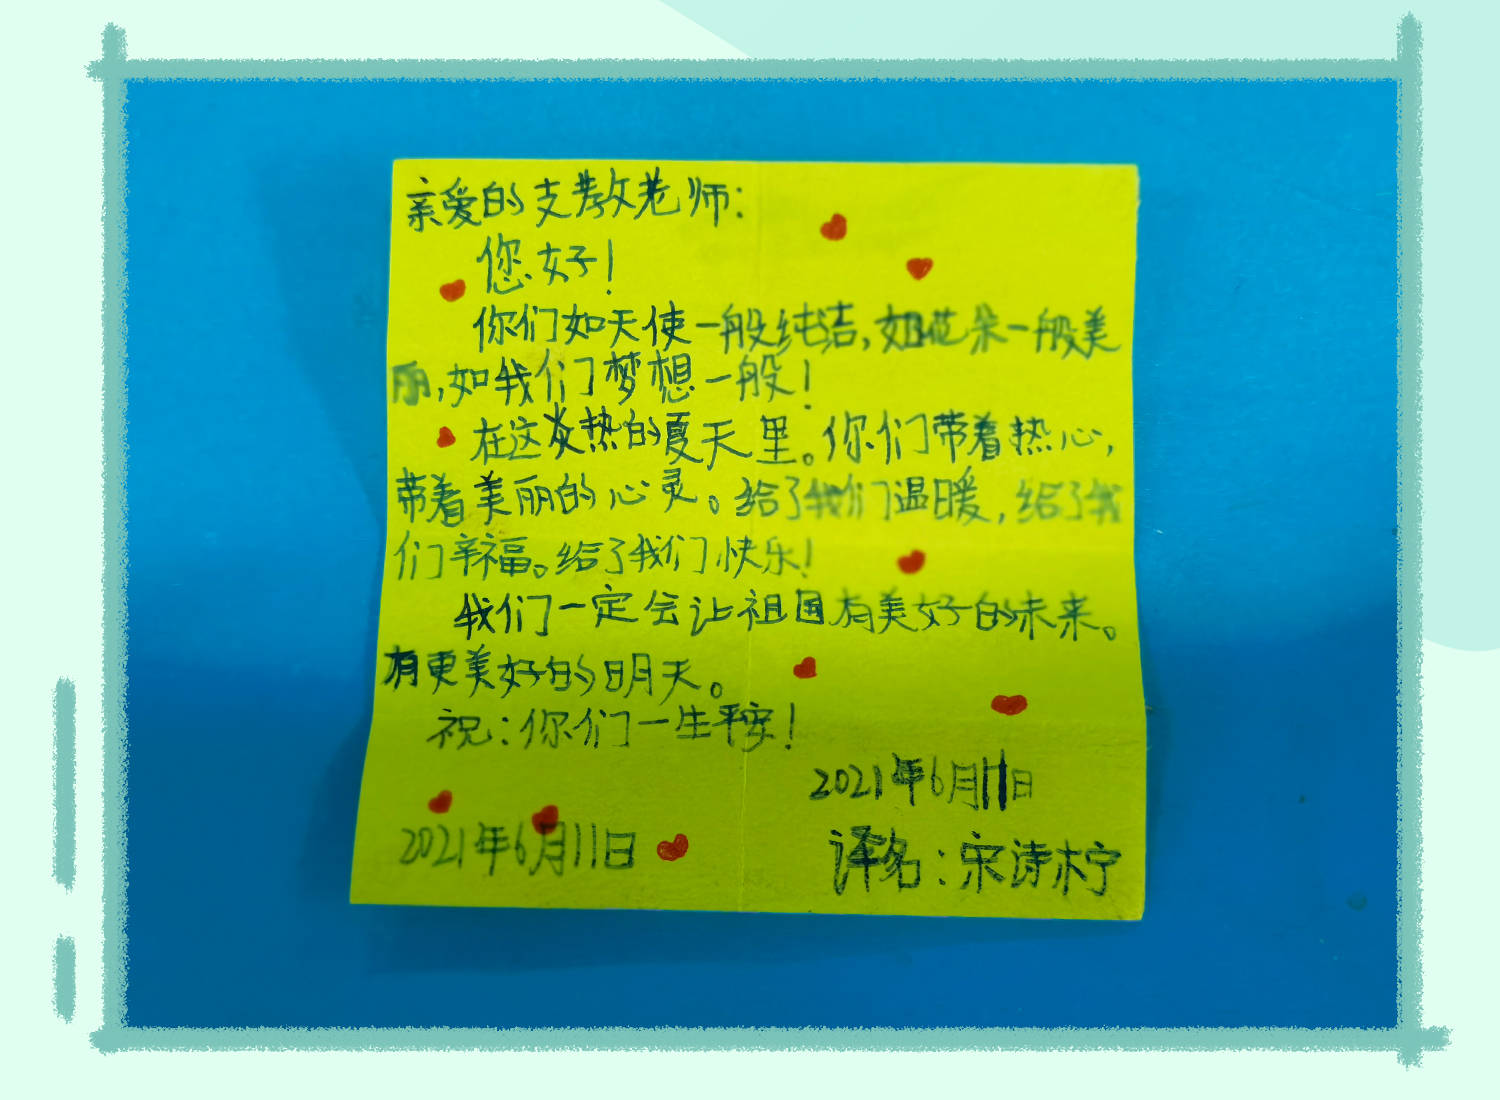 亲爱的支教老师：
您好！
你们如天使一般纯洁，如花朵一般美
丽，如我们梦想一般！
在这炎热的夏天里。你们带着热心，
带着美丽的心灵。给了我们温暖，给了我
们幸福。给了我们快乐！
我们一定会让祖国有美好的未来。
有更美好的明天。
祝：你们一生平安！
2021年6月11日
2021年6月11日
译名：宋涛柠